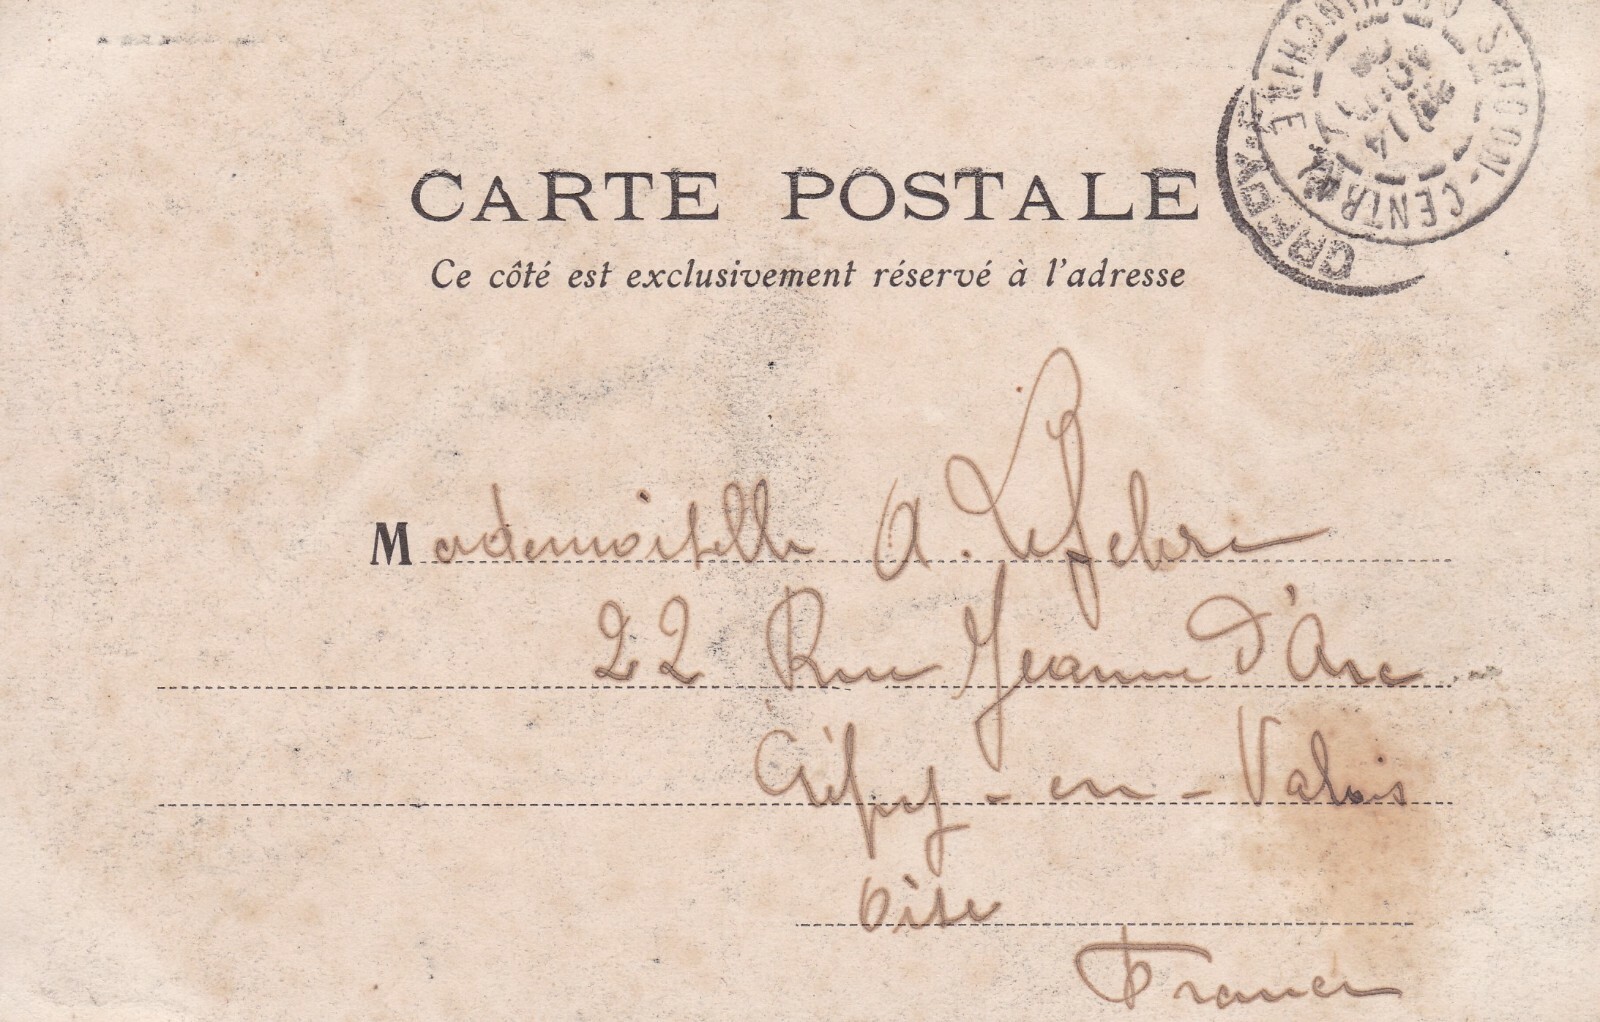 CARTE POSTALE
Ce côté est exclusivement réservé à l'adresse
SAIGON-CENTRAL
COCHINCHINE
Mademoiselle A. Lefebvre
22 Rue Jeanne d'Arc
Crépy-en-Valois
Oise
France